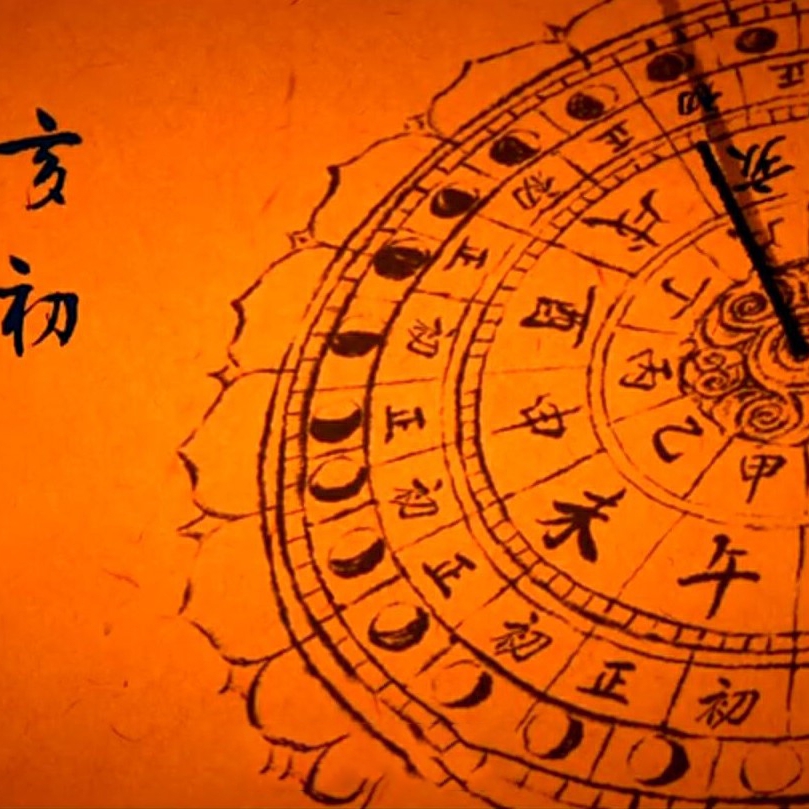 亥
初
正
初
正
初
正
初
正
初
正
初
正
初
亥
戌
酉
申
未
午
丁
丙
乙
甲